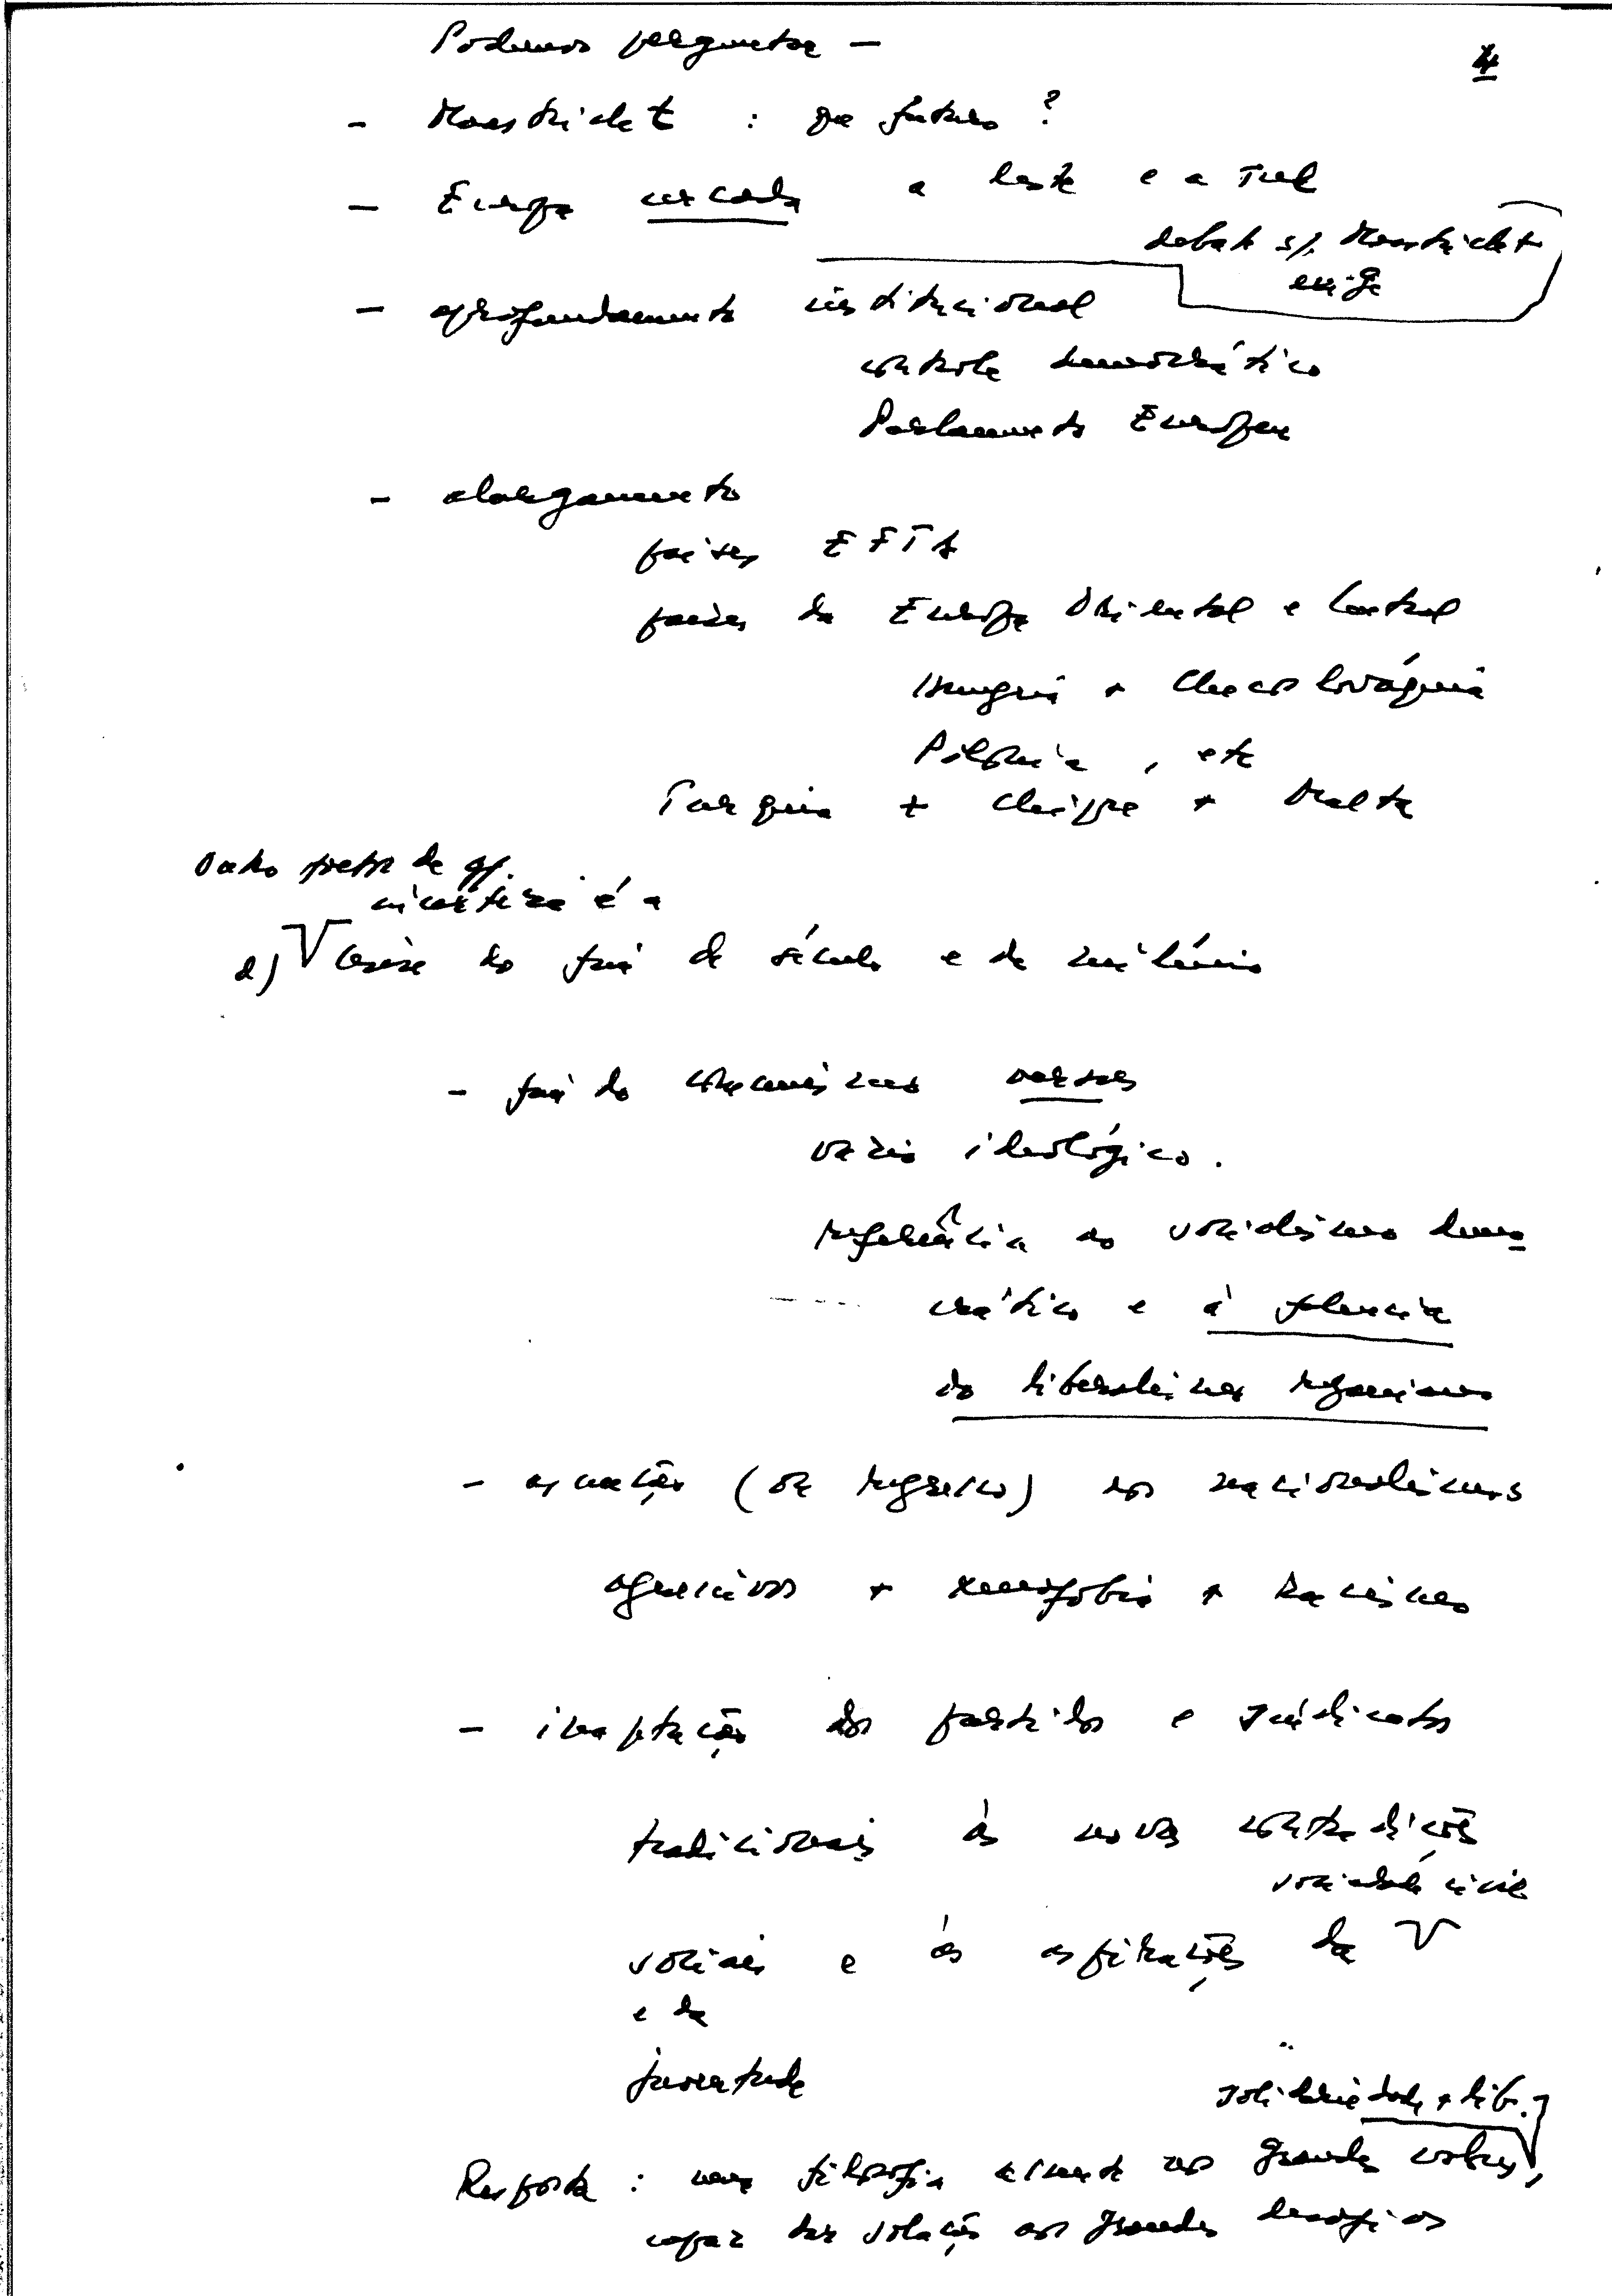 Podemos perguntar —
4
- Maastricht : que futuro ?
- Europa cercada a leste e a sul
debate s/. Maastricht
exige
- aprofundamento institucional
controle democrático
Parlamento Europeu
- alargamento
países EFTA
países da Europa Oriental e Central
Hungria + Checoslováquia
Polónia, etc
Turquia + Chipre + Malta
Outro de
incerteza é a
d) Crise do fim de século e de milénio
- fim do comunismo
vazio ideológico.
referência ao socialismo demo
crático e à falencia
do liberalismo reganiano
- ascensão (ou regresso) dos nacionalismos
agressivos + xenofobia + racismo
- inaptação dos partidos e sindicatos
tradicionais às novas contradições
sociedade civil
sociais e às aspirações da
e da
juventude
solidariedade + lib.
Resposta : uma filosofia assente nos grandes valores,
capaz dar solução aos grandes desafios